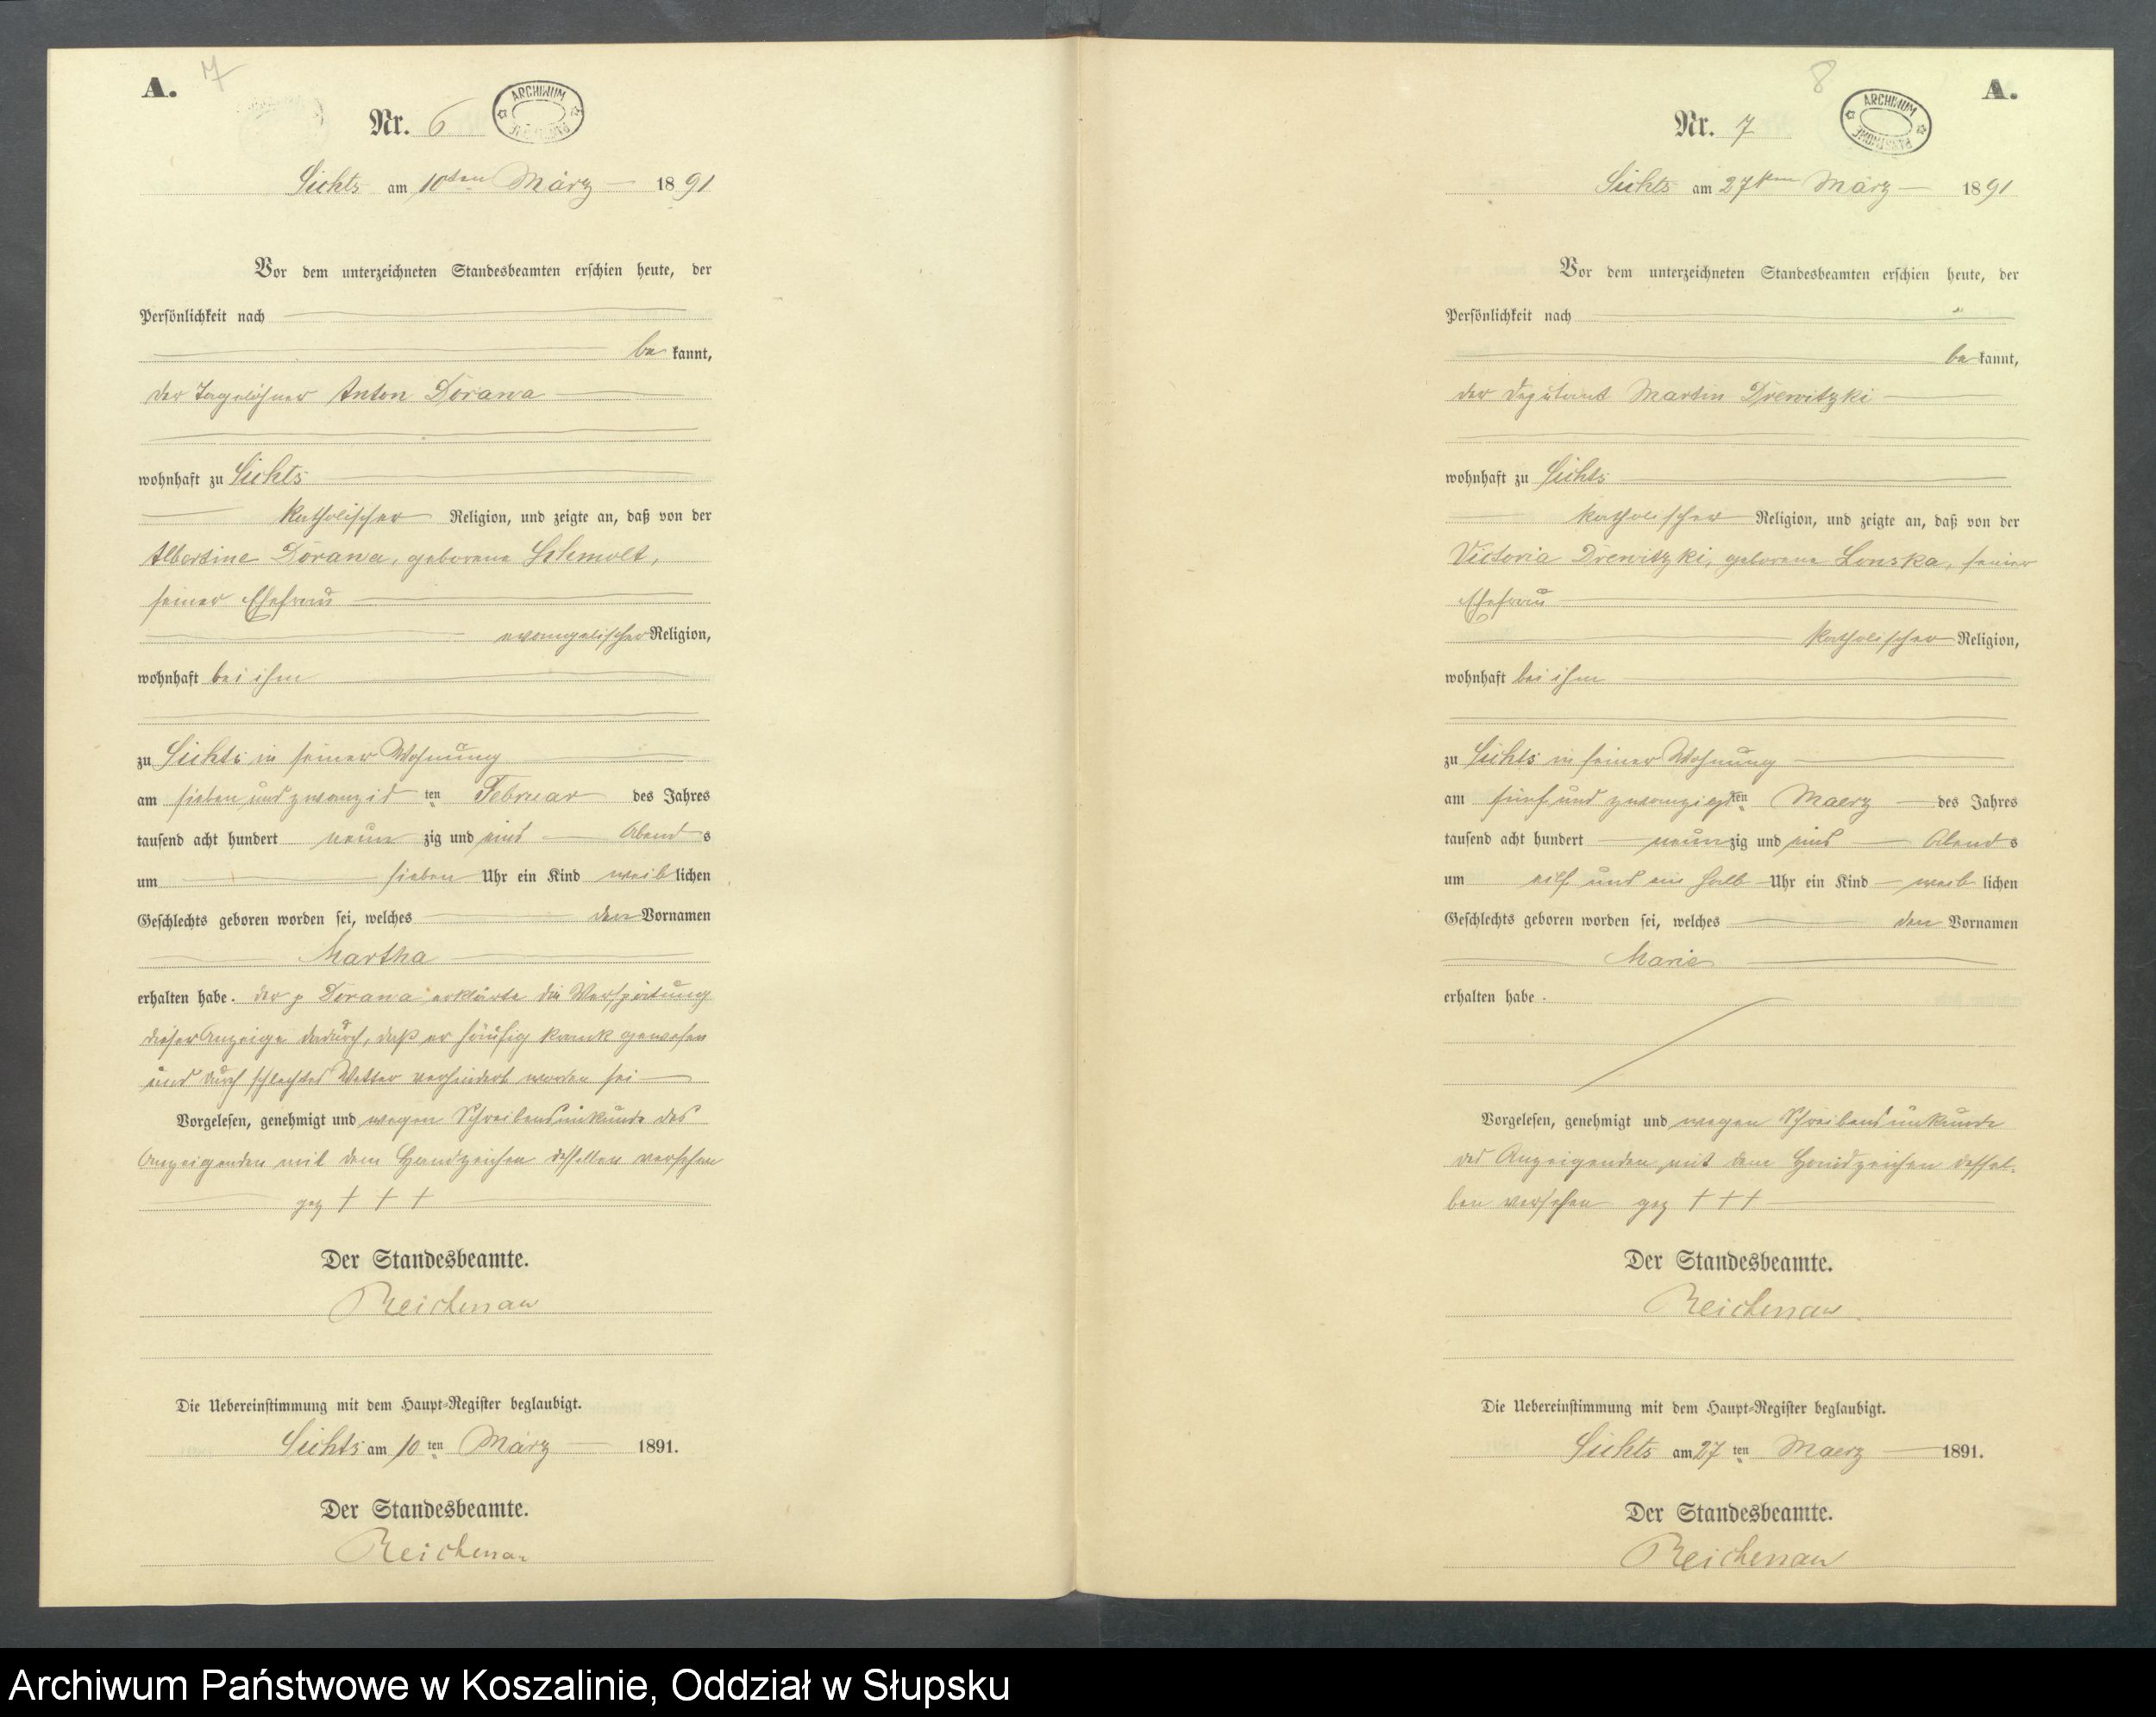 A. 7
Nr. 6
ARCHIWUM
Lichts am 10ten März 1891
Vor dem unterzeichneten Standesbeamten erschien heute, der
Persönlichkeit nach
be kannt,
der Tagelöhner Anton Dorawa
wohnhaft zu Lichts
katholischer Religion, und zeigte an, daß von der
Albertine Dorawa, geborene Schmolt,
seiner Ehefrau
evangelischer Religion,
wohnhaft bei ihm
zu Lichts in seiner Wohnung
am sieben und zwanzig ten Februar des Jahres
tausend acht hundert neun zig und eins Abend s
um sieben Uhr ein Kind weib lichen
Geschlechts geboren worden sei, welches den Vornamen
Martha
erhalten habe. Der p Dorawa erklärte die Verspätung
dieser Anzeige dadurch, daß er häufig krank gewesen
und durch schlechtes Wetter verhindert worden sei
Vorgelesen, genehmigt und wegen Schreibensunkunde des
Anzeigenden mit dem Handzeichen desselben versehen
gez † † †
Der Standesbeamte.
Reichenau
Die Uebereinstimmung mit dem Haupt-Register beglaubigt.
Lichts am 10 ten März 1891.
Der Standesbeamte.
Reichenau
8 A.
Nr. 7
ARCHIWUM PAŃSTWOWE
Lichts am 27ten März 1891
Vor dem unterzeichneten Standesbeamten erschien heute, der
Persönlichkeit nach
be kannt,
der Deputant Martin Drewitzki
wohnhaft zu Lichts
katholischer Religion, und zeigte an, daß von der
Victoria Drewitzki, geborene Lonska, seiner
Ehefrau
katholischer Religion,
wohnhaft bei ihm
zu Lichts in seiner Wohnung
am fünf und zwanzigsten Maerz des Jahres
tausend acht hundert neun zig und eins Abend s
um elf und ein halb Uhr ein Kind weib lichen
Geschlechts geboren worden sei, welches den Vornamen
Marie
erhalten habe.
Vorgelesen, genehmigt und wegen Schreibensunkunde
des Anzeigenden mit dem Handzeichen dessel-
ben versehen gez † † †
Der Standesbeamte.
Reichenau
Die Uebereinstimmung mit dem Haupt-Register beglaubigt.
Lichts am 27 ten Maerz 1891.
Der Standesbeamte.
Reichenau
Archiwum Państwowe w Koszalinie, Oddział w Słupsku